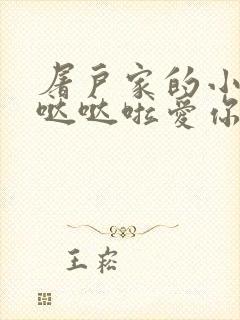 屠户家的小
哒哒啦爱你
王崧